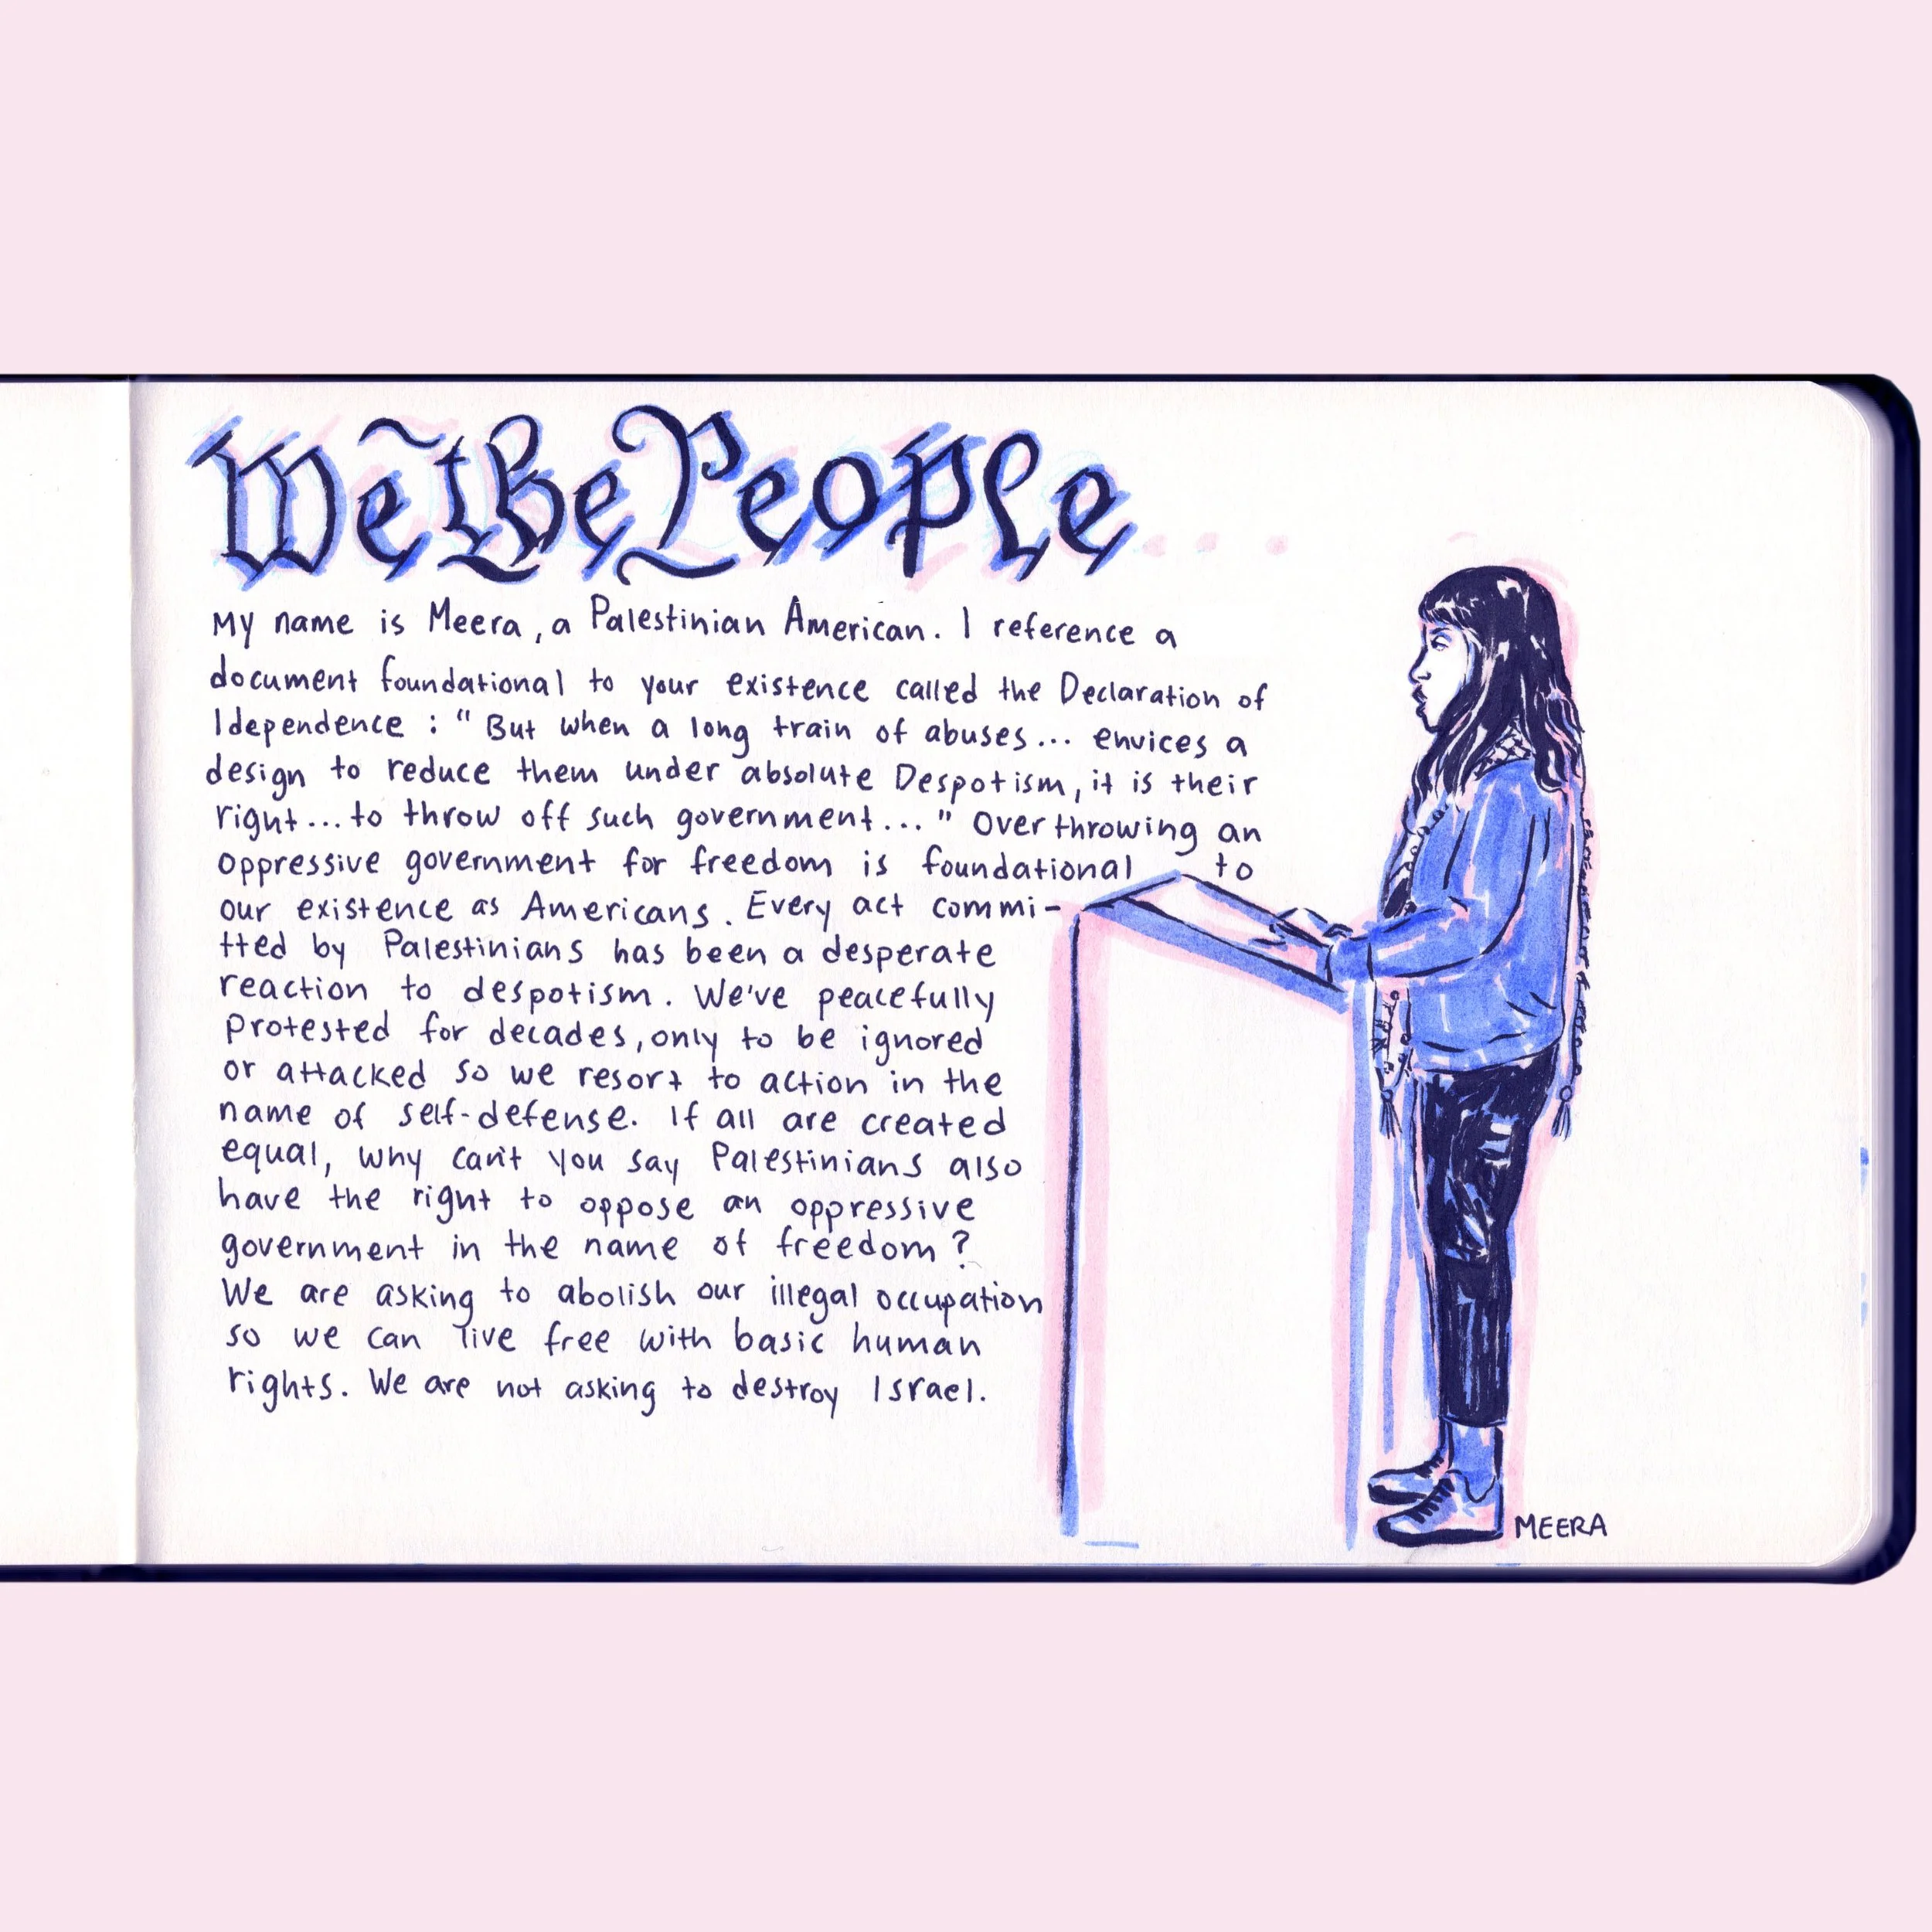 We the People...
My name is Meera, a Palestinian American. I reference a
document foundational to your existence called the Declaration of
Idependence : "But when a long train of abuses... envices a
design to reduce them under absolute Despotism, it is their
right...to throw off such government..." Overthrowing an
oppressive government for freedom is foundational to
our existence as Americans. Every act commi-
tted by Palestinians has been a desperate
reaction to despotism. We've peacefully
protested for decades, only to be ignored
or attacked so we resort to action in the
name of self-defense. If all are created
equal, why can't you say Palestinians also
have the right to oppose an oppressive
government in the name of freedom?
We are asking to abolish our illegal occupation
so we can live free with basic human
rights. We are not asking to destroy Israel.
MEERA